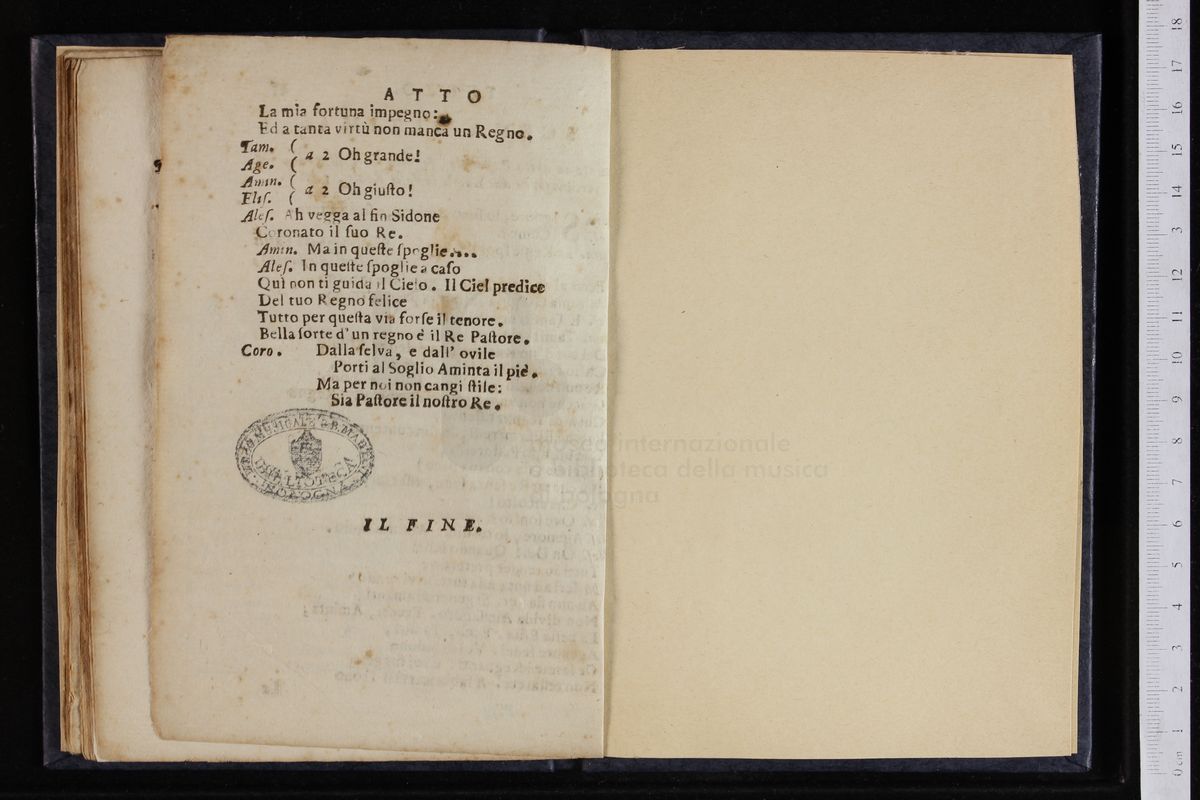 ATTO
La mia fortuna impegno:
Ed a tanta virtù non manca un Regno.
Tam. (
Age. ( a 2 Oh grande!
Amin. (
Elis. ( a 2 Oh giuſto!
Aleſ. Ah vegga al fin Sidone
Coronato il ſuo Re.
Amin. Ma in queſte ſpoglie....
Aleſ. In queſte ſpoglie a caſo
Quì non ti guida il Cielo. Il Ciel predice
Del tuo Regno felice
Tutto per queſta via forſe il tenore.
Bella ſorte d' un regno è il Re Paſtore.
Coro. Dalla ſelva, e dall' ovile
Porti al Soglio Aminta il piè.
Ma per noi non cangi ſtile:
Sia Paſtore il noſtro Re.
BIBLIOTECA
BOLOGNA
museo internazionale
e biblioteca della musica
di bologna
IL FINE.
0 cm 1 2 3 4 5 6 7 8 9 10 11 12 13 14 15 16 17 18